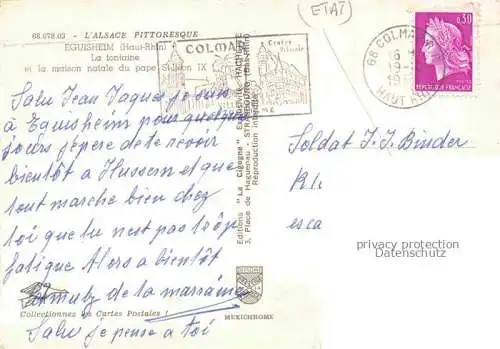 (ETAT)
68.078.03 - L'ALSACE PITTORESQUE
EGUISHEIM (Haut-Rhin)
La fontaine
et la maison natale du pape St-Léon IX
COLMAR
Centre
VILLE
68 COLMAR
19
HAUT RHIN
0,30
REPUBLIQUE FRANÇAISE
Salu Jean Jaques je suis
à Eguisheim pour quelque
jours j'épere de te revoir
bientôt à Husseren et que
tout marche bien chez
toi que tu nest pas trôp
fatigue Alors a bientôt
de la marraine
Salu je pense a toi
Editions "La Cigogne" EXCLUSIVITE HACHETTE
3, Place de Haguenau - STRASBOURG (Bas-Rhin)
Reproduction interdite
Soldat J. J. Binder
esca
privacy protection
Datenschutz
Collectionnez les Cartes Postales !
MEXICHROME